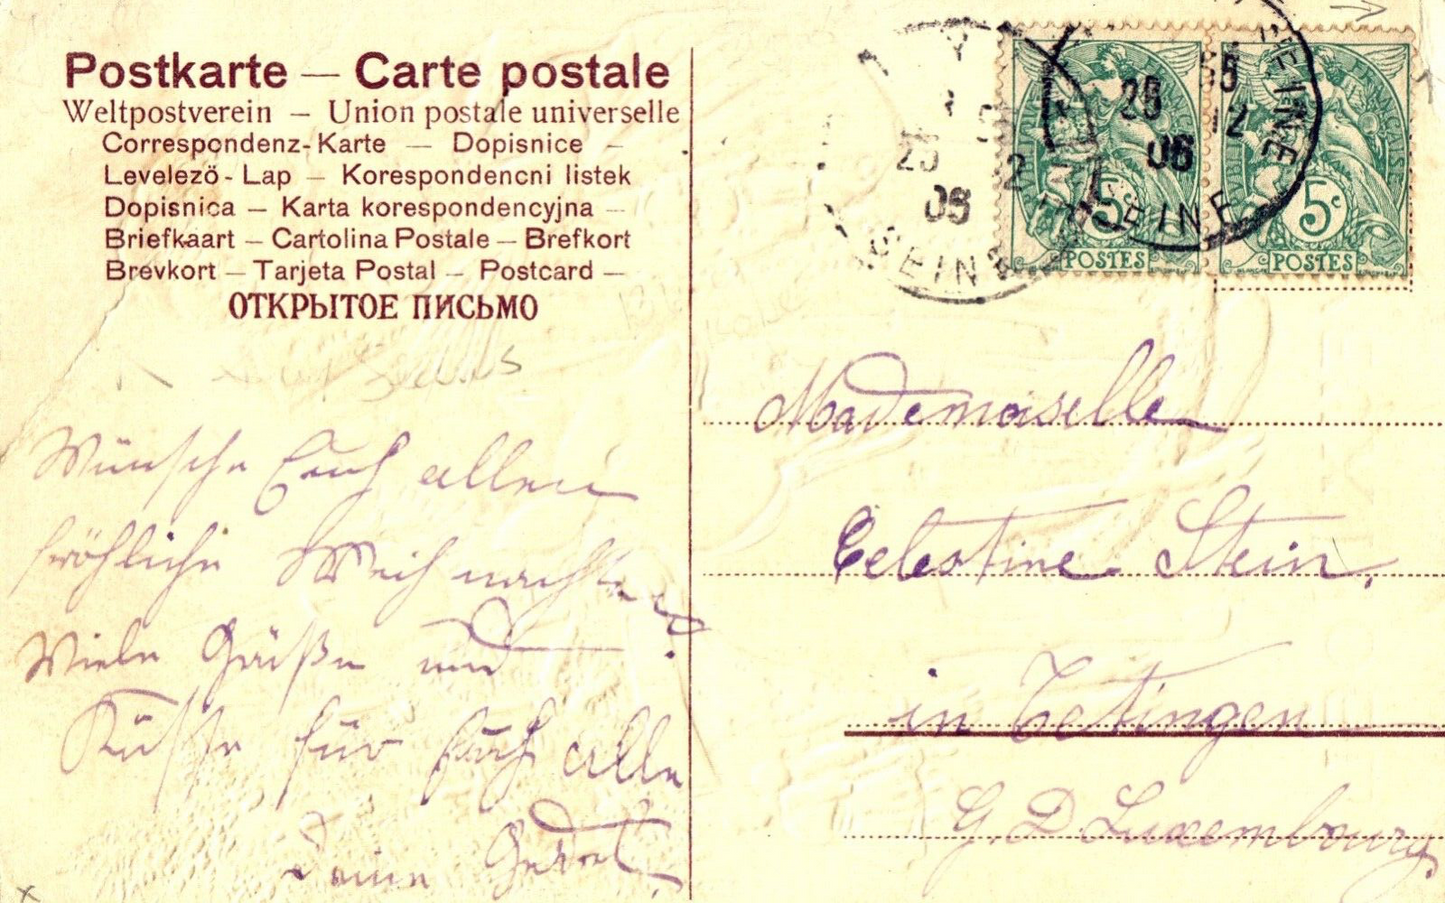 Postkarte — Carte postale
Weltpostverein — Union postale universelle
Correspondenz-Karte — Dopisnice —
Levelezö-Lap — Korespondencni listek
Dopisnica — Karta korespondencyjna —
Briefkaart — Cartolina Postale — Brefkort
Brevkort — Tarjeta Postal — Postcard —
ОТКРЫТОЕ ПИСЬМО
Wünsche Euch allen
fröhliche Weihnachten
Viele Grüße und
Küsse für Euch alle
Deine
25
12
06
SEINE
25
12
06
SEINE
5c
POSTES
5c
POSTES
Mademoiselle
Celestine Stein,
in Tetingen
G. D. Luxembourg.